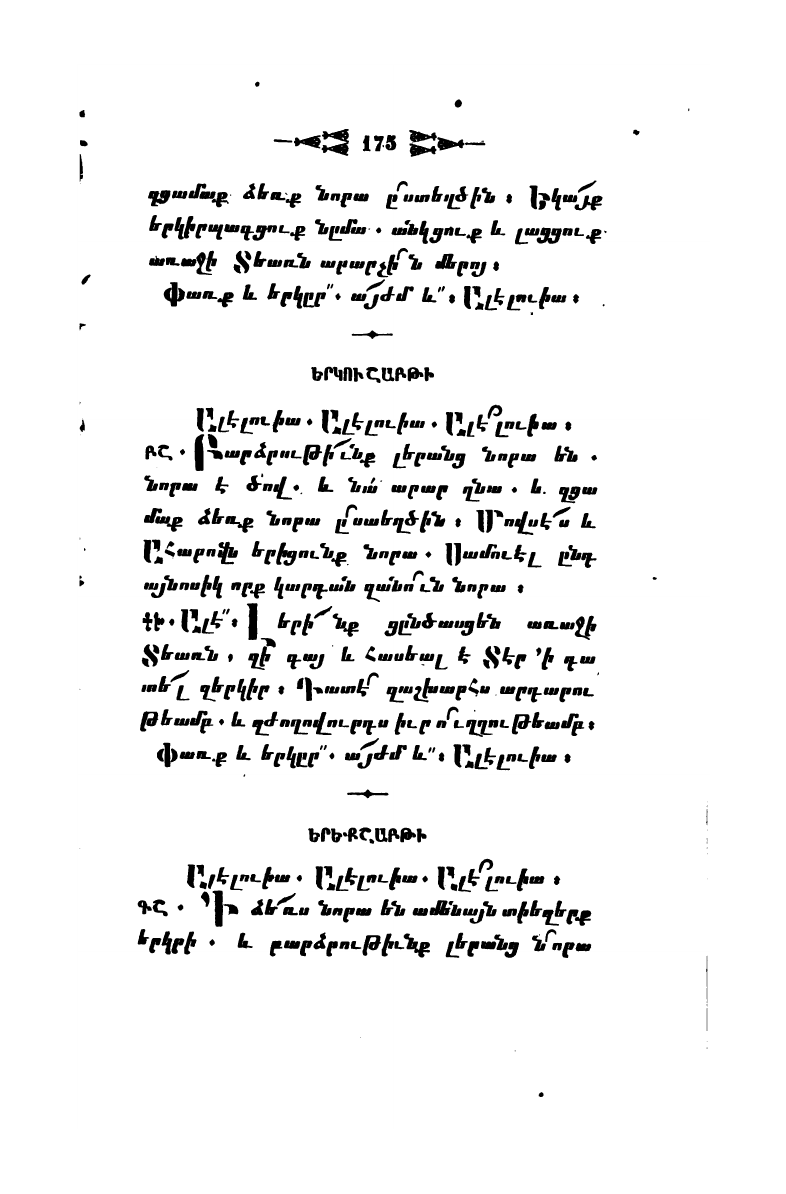 175
զցամաք ձեռք նորա ը՜ստեղծին ։ Եկա՜յք
երկիրպագցուք նըմա . անկցուք և լացցուք
առաջի Տեառն արարչի՜ն մերոյ ։
Փառք և երկրը՞. ա՜յժմ և՞ ։ Ալէլուիա ։
ԵՐԿՈՒՇԱԲԹԻ
Ալէլուիա . Ալէլուիա . Ալէ՜լուիա ։
ԲՇ . Բարձրութի՜ւնք լերանց նորա են .
նորա է ծով . և նա՛ արար զնա . և զցա
մաք ձեռք նորա ը՜ստեղծին ։ Մովսէ՜ս և
Ահարովն երիցունք նորա . Սամուէլ ընդ
այնոսիկ որք կարդան զանո՜ւն նորա ։
Ալէ՞ ։ Լ երի՜նք ցընծասցեն առաջի
Տեառն , զի՜ գայ և հասեալ է Տէր ՚ի դա
տե՜լ զերկիր ։ Դատէ՜ զաշխարհս արդարու
թեամբ . և զժողովուրդս իւր ո՜ւղղութեամբ ։
Փառք և երկրը՞. ա՜յժմ և՞ ։ Ալէլուիա ։
ԵՐԵՔՇԱԲԹԻ
Ալէլուիա . Ալէլուիա . Ալէ՜լուիա ։
ԳՇ . ՚Ի ձե՜ռս նորա են ամենայն տիեզերք
երկրի . և բարձրութիւնք լերանց ն՜որա